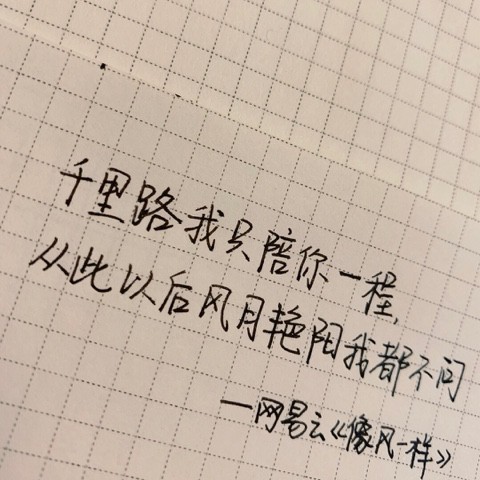 千里路我只陪你一程,
从此以后风月艳阳我都不问
一网易云《像风一样》